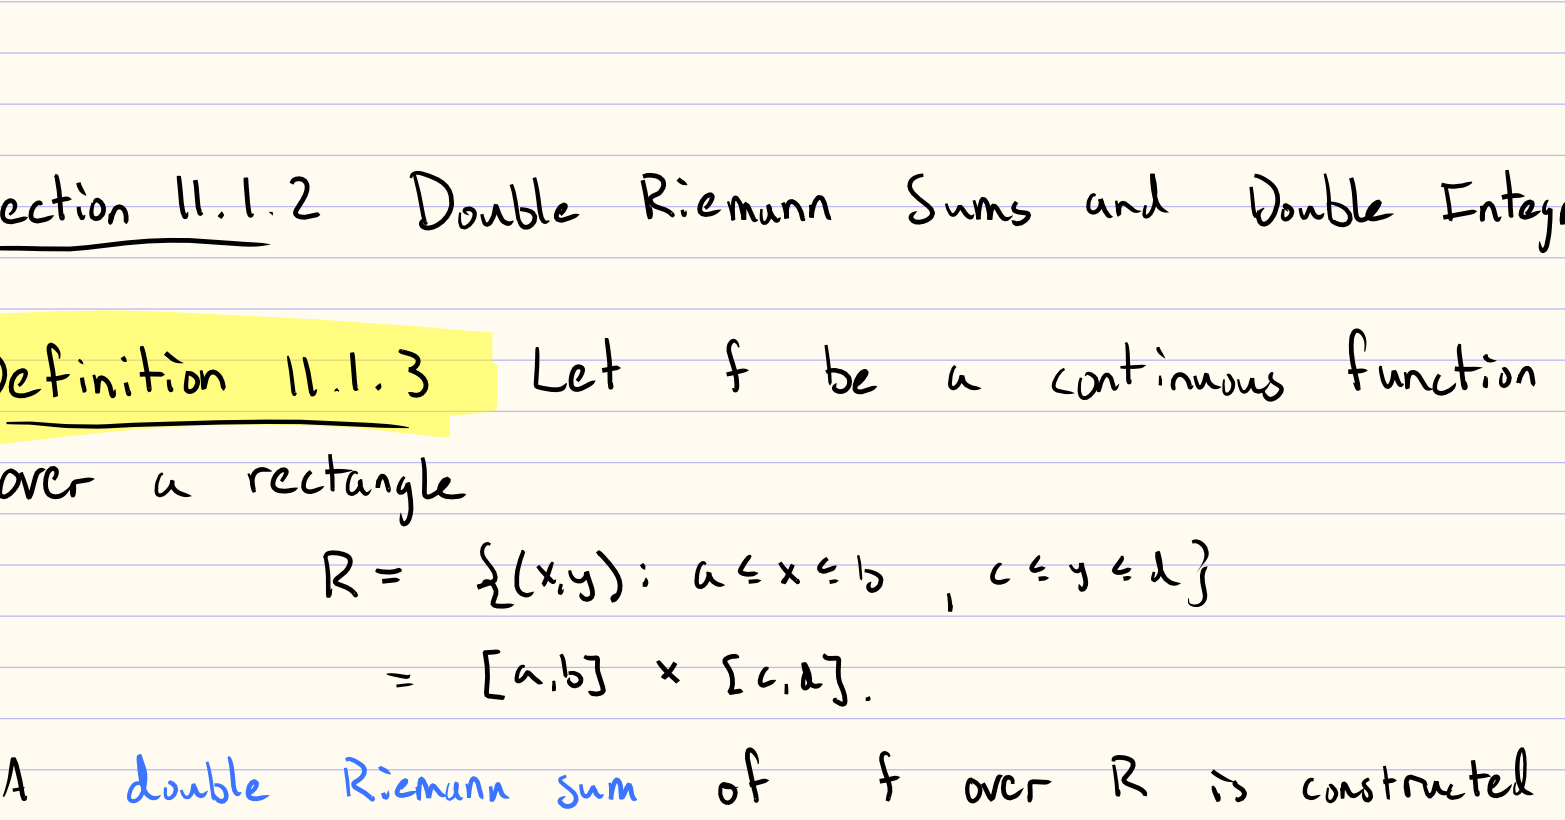 ection 11.1.2 Double Riemann Sums and Double Integr
Definition 11.1.3 Let f be a continuous function
over a rectangle
R = {(x,y): a ≤ x ≤ b , c ≤ y ≤ d}
= [a,b] × [c,d].
A double Riemann sum of f over R is constructed